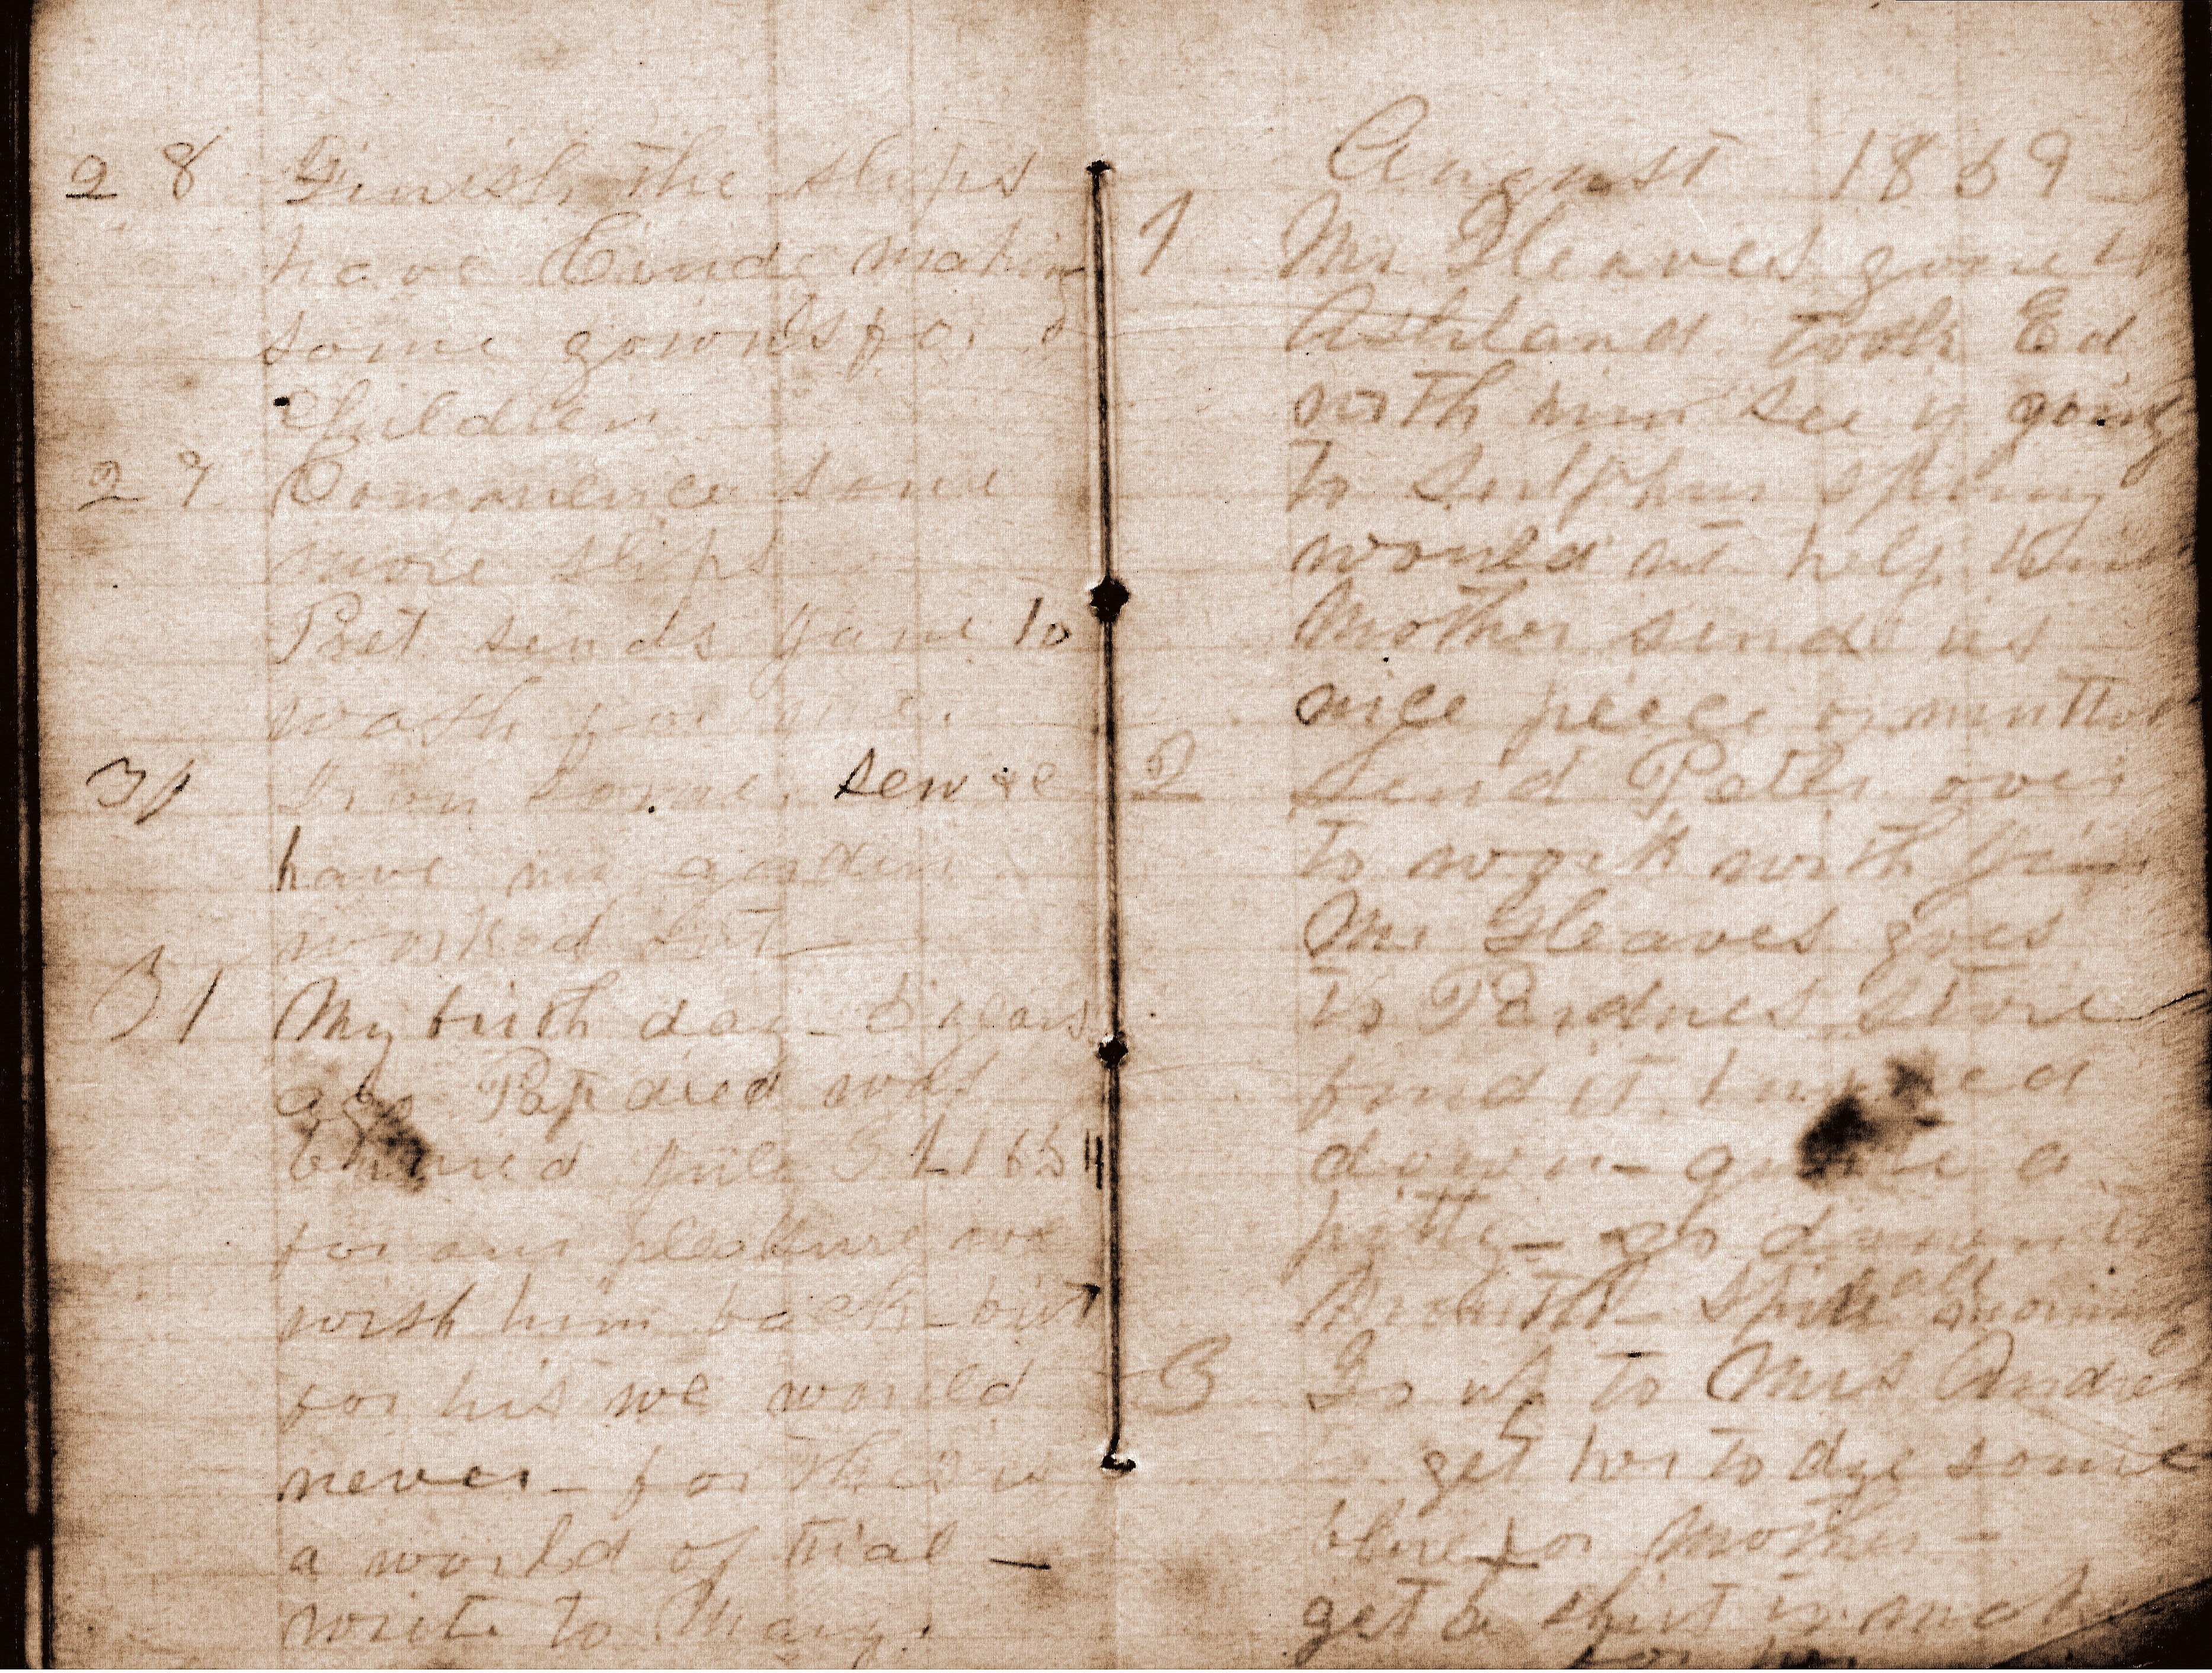 28 Finish the slips
have Cinda making
some gowns for
Children
29 Commence some
more slips
Pret sends Jane to
wash for us.
30 Iron some, sew some
have my garden
worked out
31 My birth day - 5 years
ago Pap died was
buried july 31 1854
for our pleasure we
wish him back - but
for his we would
never - for this is
a world of trial -
write to Mary.
August 1859
1 Mr Gleaves gone to
Ashland took Ed
with him see if going
to Sulphur spring
would not help him
Mother send us
nice peece of mutton
2 send Peter over
to work with Jim
Mr Gleaves goes
to Pardues store
find it burned
down - quite a
pitty - go down in
3 Go up to Mrs Andre
get her to dye some
blue for Mother -
get a shirt to make
for